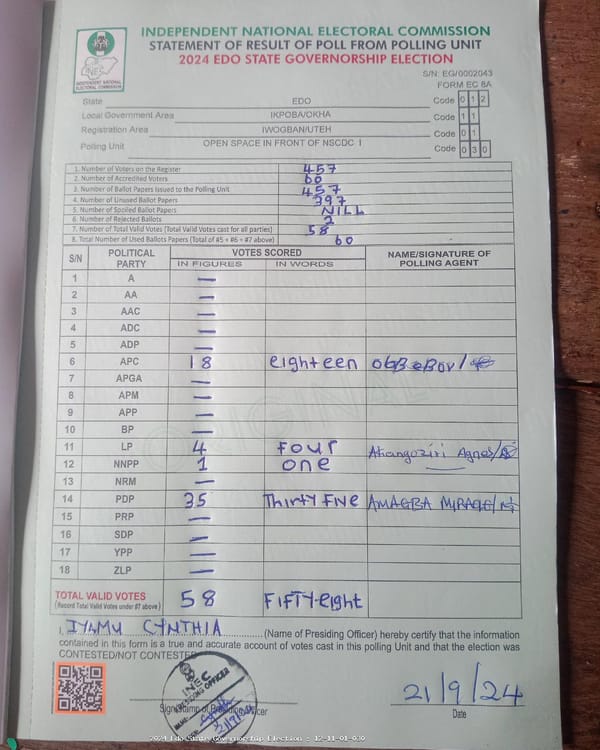 INDEPENDENT NATIONAL ELECTORAL COMMISSION
STATEMENT OF RESULT OF POLL FROM POLLING UNIT
2024 EDO STATE GOVERNORSHIP ELECTION
INEC
INDEPENDENT NATIONAL ELECTORAL COMMISSION
S/N: EG/0002043
FORM EC 8A
State EDO Code 0 1 2
Local Government Area IKPOBA/OKHA Code 1 1
Registration Area IWOGBAN/UTEH Code 0 1
Polling Unit OPEN SPACE IN FRONT OF NSCDC I Code 0 3 0
1. Number of Voters on the Register 457
2. Number of Accredited Voters 60
3. Number of Ballot Papers Issued to the Polling Unit 457
4. Number of Unused Ballot Papers 397
5. Number of Spoiled Ballot Papers NILL
6. Number of Rejected Ballots 2
7. Number of Total Valid Votes (Total Valid Votes cast for all parties) 58
8. Total Number of Used Ballots Papers (Total of #5 + #6 + #7 above) 60
S/N POLITICAL PARTY VOTES SCORED NAME/SIGNATURE OF POLLING AGENT
IN FIGURES IN WORDS
1 A —
2 AA —
3 AAC —
4 ADC —
5 ADP —
6 APC 18 eighteen
7 APGA —
8 APM —
9 APP —
10 BP —
11 LP 4 four Agnes
12 NNPP 1 one
13 NRM —
14 PDP 35 Thirty Five AMAGBA
15 PRP —
16 SDP —
17 YPP —
18 ZLP —
TOTAL VALID VOTES 58 FIFTY-eight
(Record Total Valid Votes under #7 above)
I, CYNTHIA (Name of Presiding Officer) hereby certify that the information
contained in this form is a true and accurate account of votes cast in this polling Unit and that the election was
CONTESTED/NOT CONTESTED
INEC
PRESIDING OFFICER
21/9/24
Date
2024 Edo State Governorship Election - 12-11-01-030